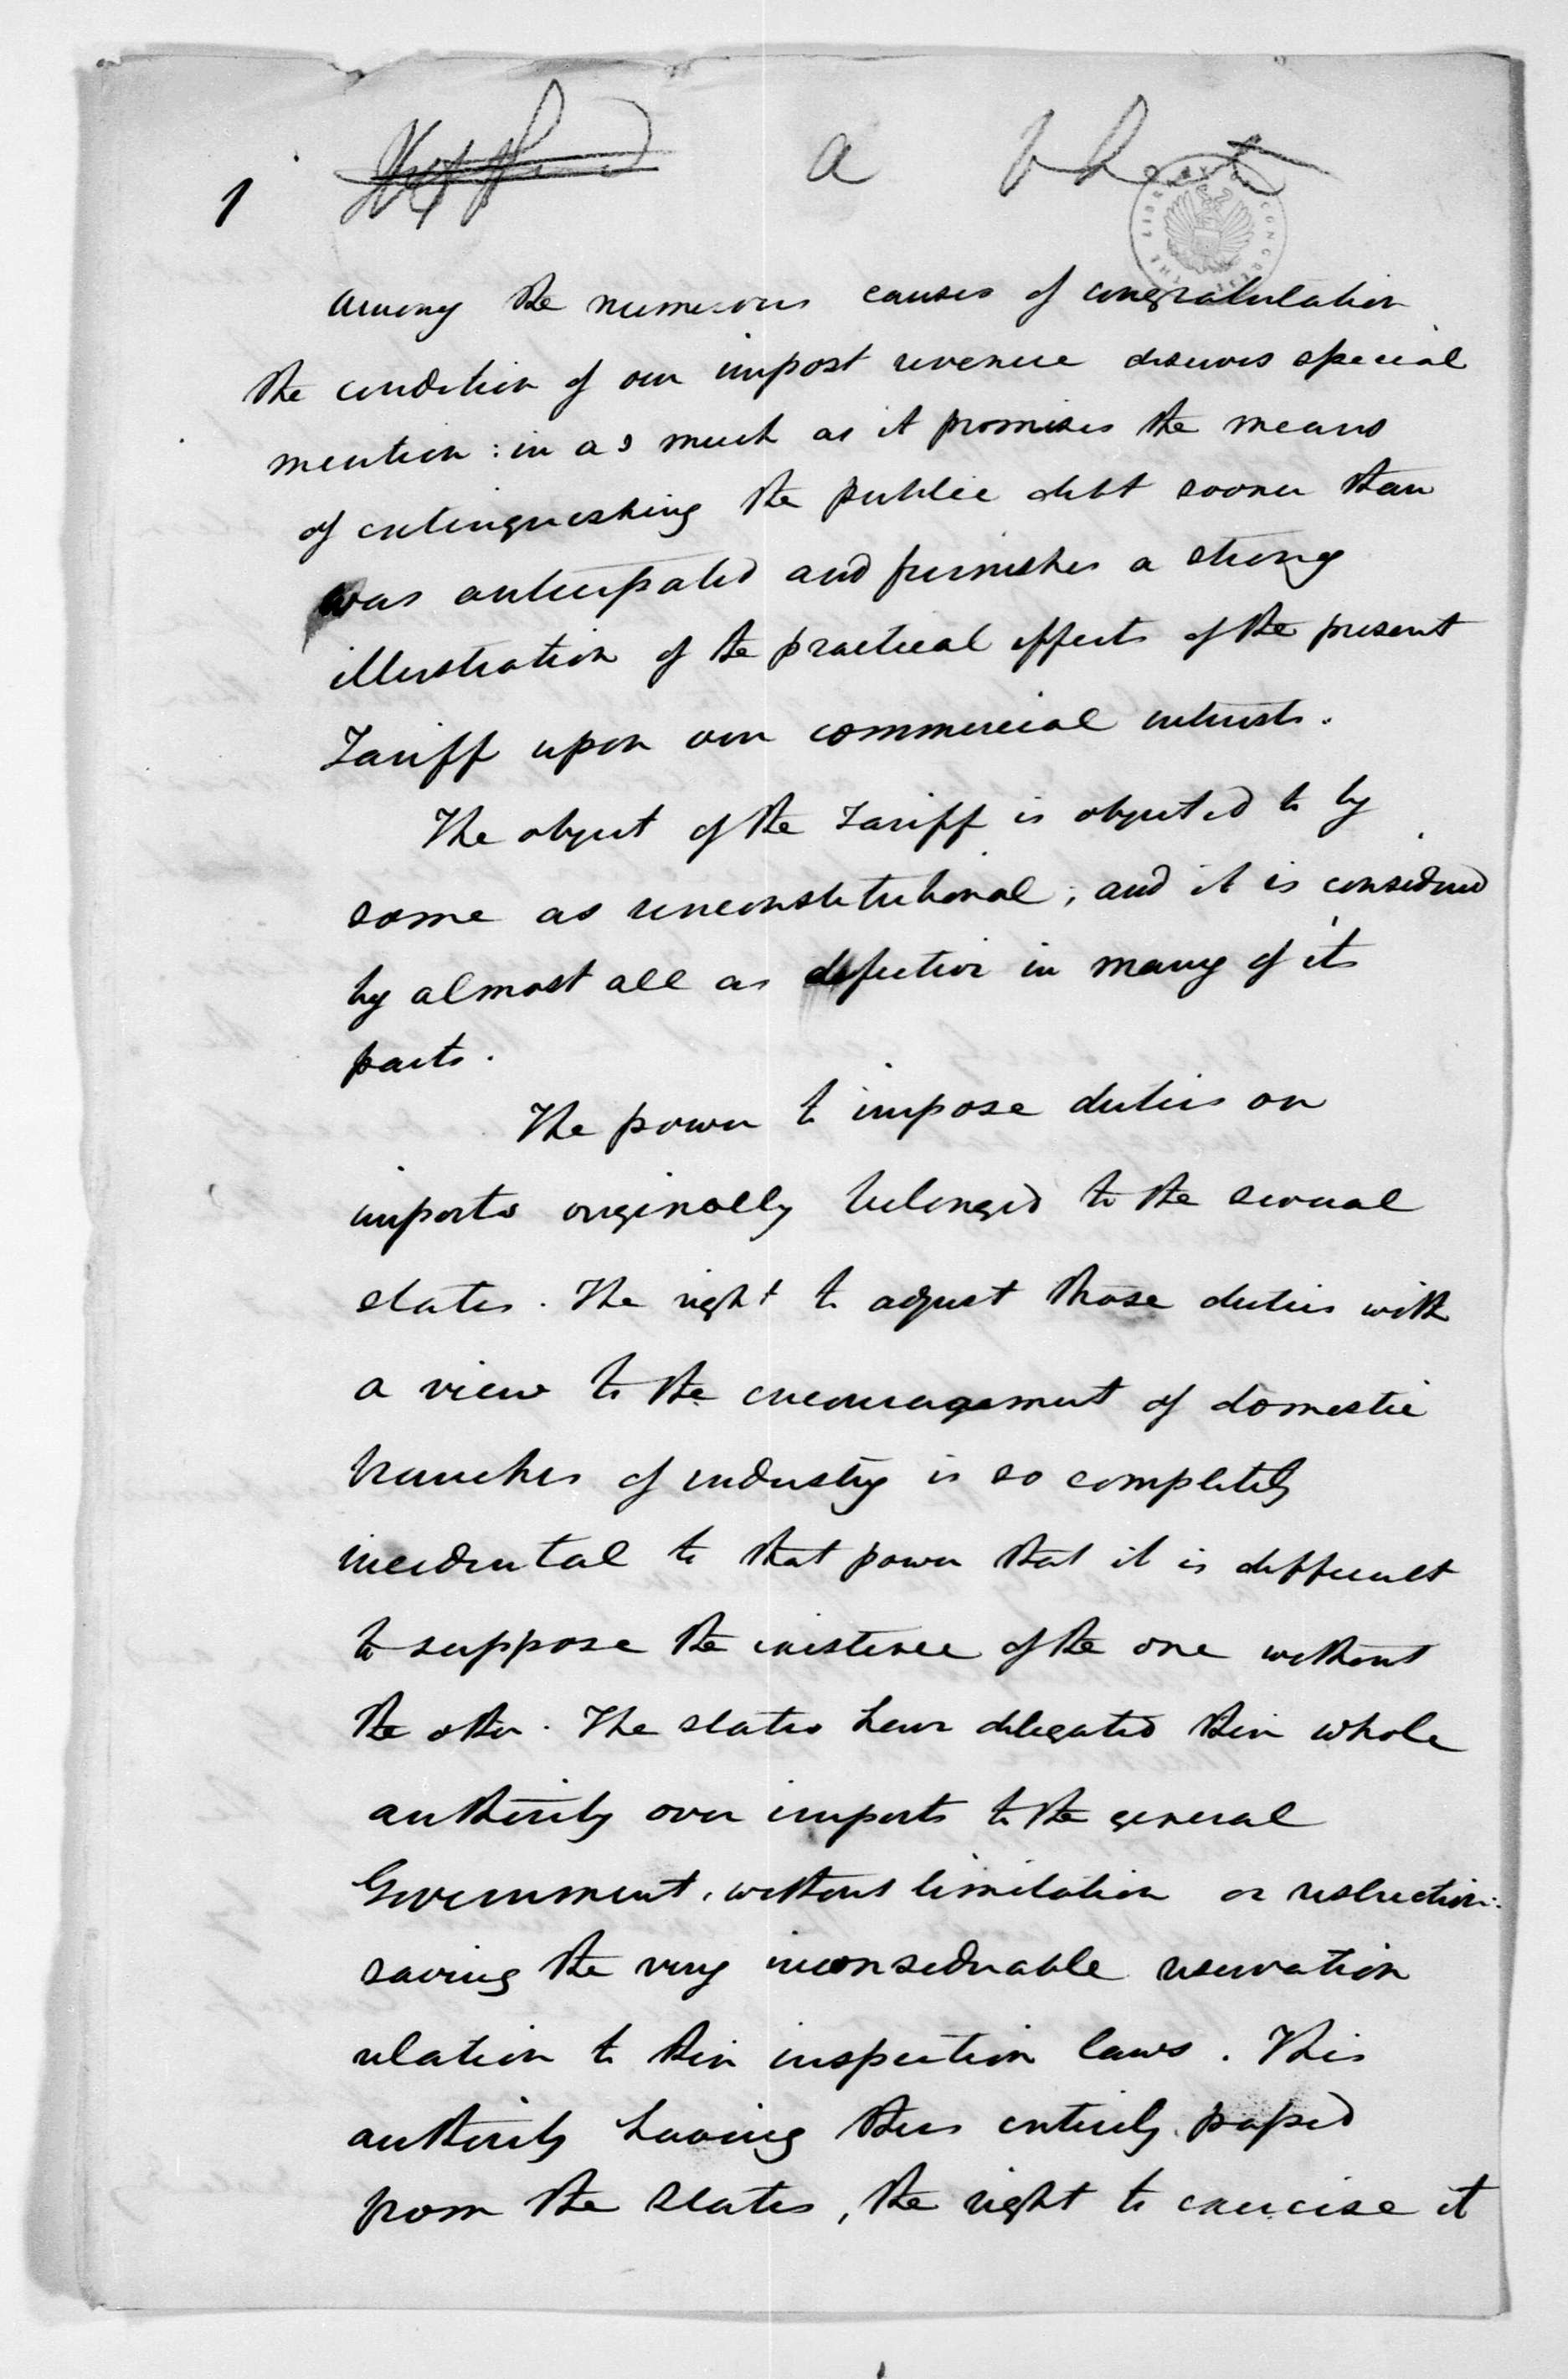 1
a
Among the numerous causes of congratulation
the condition of our impost revenue deserves special
mention: in as much as it promises the means
of extinguishing the public debt sooner than
was anticipated and furnishes a strong
illustration of the practical effects of the present
Tariff upon our commercial interests.
The object of the Tariff is objected to by
some as unconstitutional; and it is considered
by almost all as defective in many of its
parts.
The power to impose duties on
imports originally belonged to the several
states. The right to adjust those duties with
a view to the encouragement of domestic
branches of industry is so completely
incidental to that power that it is difficult
to suppose the existence of the one without
the other. The states have delegated their whole
authority over imports to the general
Government, without limitation or restriction:
saving the very inconsiderable reservation
relation to their inspection laws. This
authority having thus entirely passed
from the States, the right to exercise it